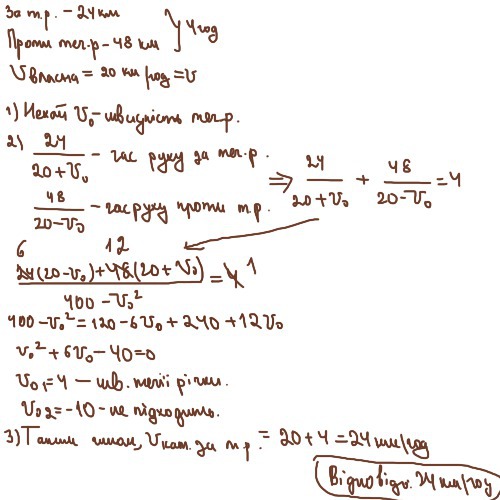 За т.р. - 24 км
Проти теч.р - 48 км } 4 год
V власна = 20 км/год = V
1) Нехай V₀ - швидкість теч.р.
2) 24/(20+V₀) - час руху за теч.р.
48/(20-V₀) - час руху проти т.р.
⇒ 24/(20+V₀) + 48/(20-V₀) = 4
(24(20-V₀)+48(20+V₀))/(400-V₀²) = 4 6 12 1
400-V₀² = 120-6V₀+240+12V₀
V₀²+6V₀-40=0
V₀₁=4 - шв. течії річки.
V₀₂=-10 - не підходить.
3) Таким чином, V кат. за т.р. = 20+4 = 24 км/год
Відповідь: 24 км/год